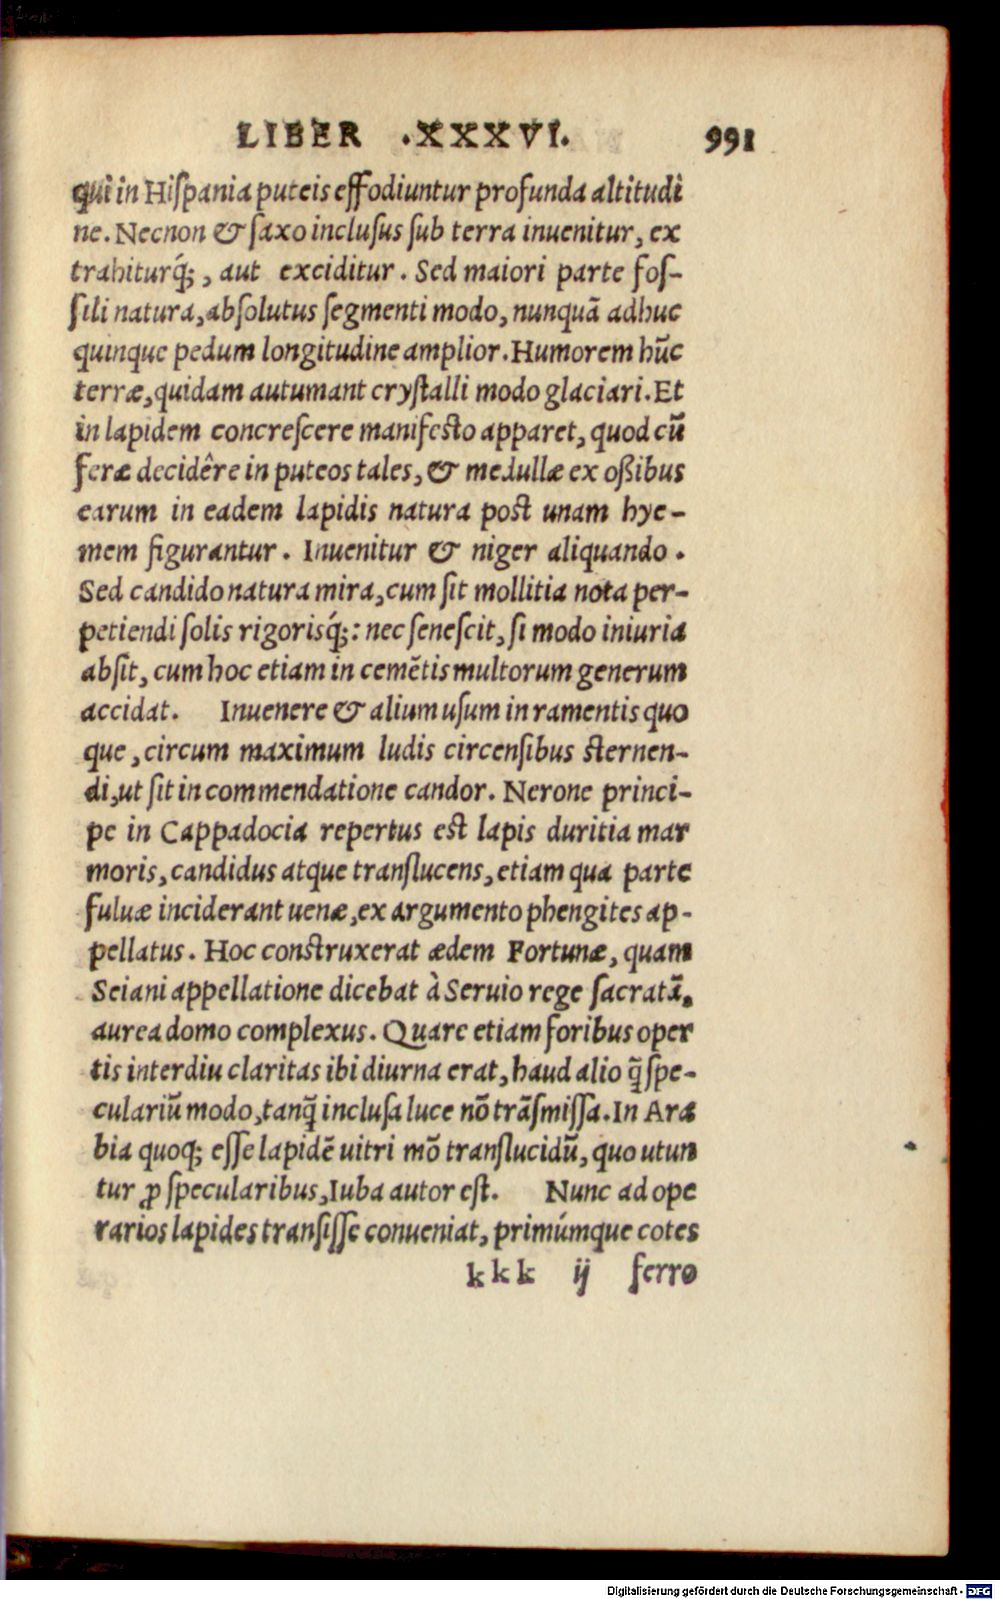 LIBER .XXXVI. 991
qui in Hiſpania puteis effodiuntur profunda altitudi
ne. Necnon & ſaxo incluſus ſub terra inuenitur, ex
trahiturq́;, aut exciditur. Sed maiori parte foſ-
ſili natura, abſolutus ſegmenti modo, nunquã adhuc
quinque pedum longitudine amplior. Humorem hũc
terræ, quidam autumant cryſtalli modo glaciari. Et
in lapidem concreſcere manifeſto apparet, quod cũ
feræ decidêre in puteos tales, & medullæ ex oſsibus
earum in eadem lapidis natura poſt unam hye-
mem figurantur. Inuenitur & niger aliquando.
Sed candido natura mira, cum ſit mollitia nota per-
petiendi ſolis rigorisq́;: nec ſeneſcit, ſi modo iniuria
abſit, cum hoc etiam in cemẽtis multorum generum
accidat. Inuenere & alium uſum in ramentis quo
que, circum maximum ludis circenſibus ſternen-
di, ut ſit in commendatione candor. Nerone princi-
pe in Cappadocia repertus eſt lapis duritia mar
moris, candidus atque tranſlucens, etiam qua parte
fuluæ inciderant uenæ, ex argumento phengites ap-
pellatus. Hoc conſtruxerat ædem Fortunæ, quam
Seiani appellatione dicebat à Seruio rege ſacratã,
aurea domo complexus. Quare etiam foribus oper
tis interdiu claritas ibi diurna erat, haud alio q̃ ſpe-
culariũ modo, tanq̃ incluſa luce nõ trãſmiſſa. In Ara
bia quoq; eſſe lapidẽ uitri mõ tranſlucidũ, quo utun
tur ꝓ ſpecularibus, Iuba autor eſt. Nunc ad ope
rarios lapides tranſiſſe conueniat, primúmque cotes
kkk ij ferro
Digitalisierung gefördert durch die Deutsche Forschungsgemeinschaft - DFG